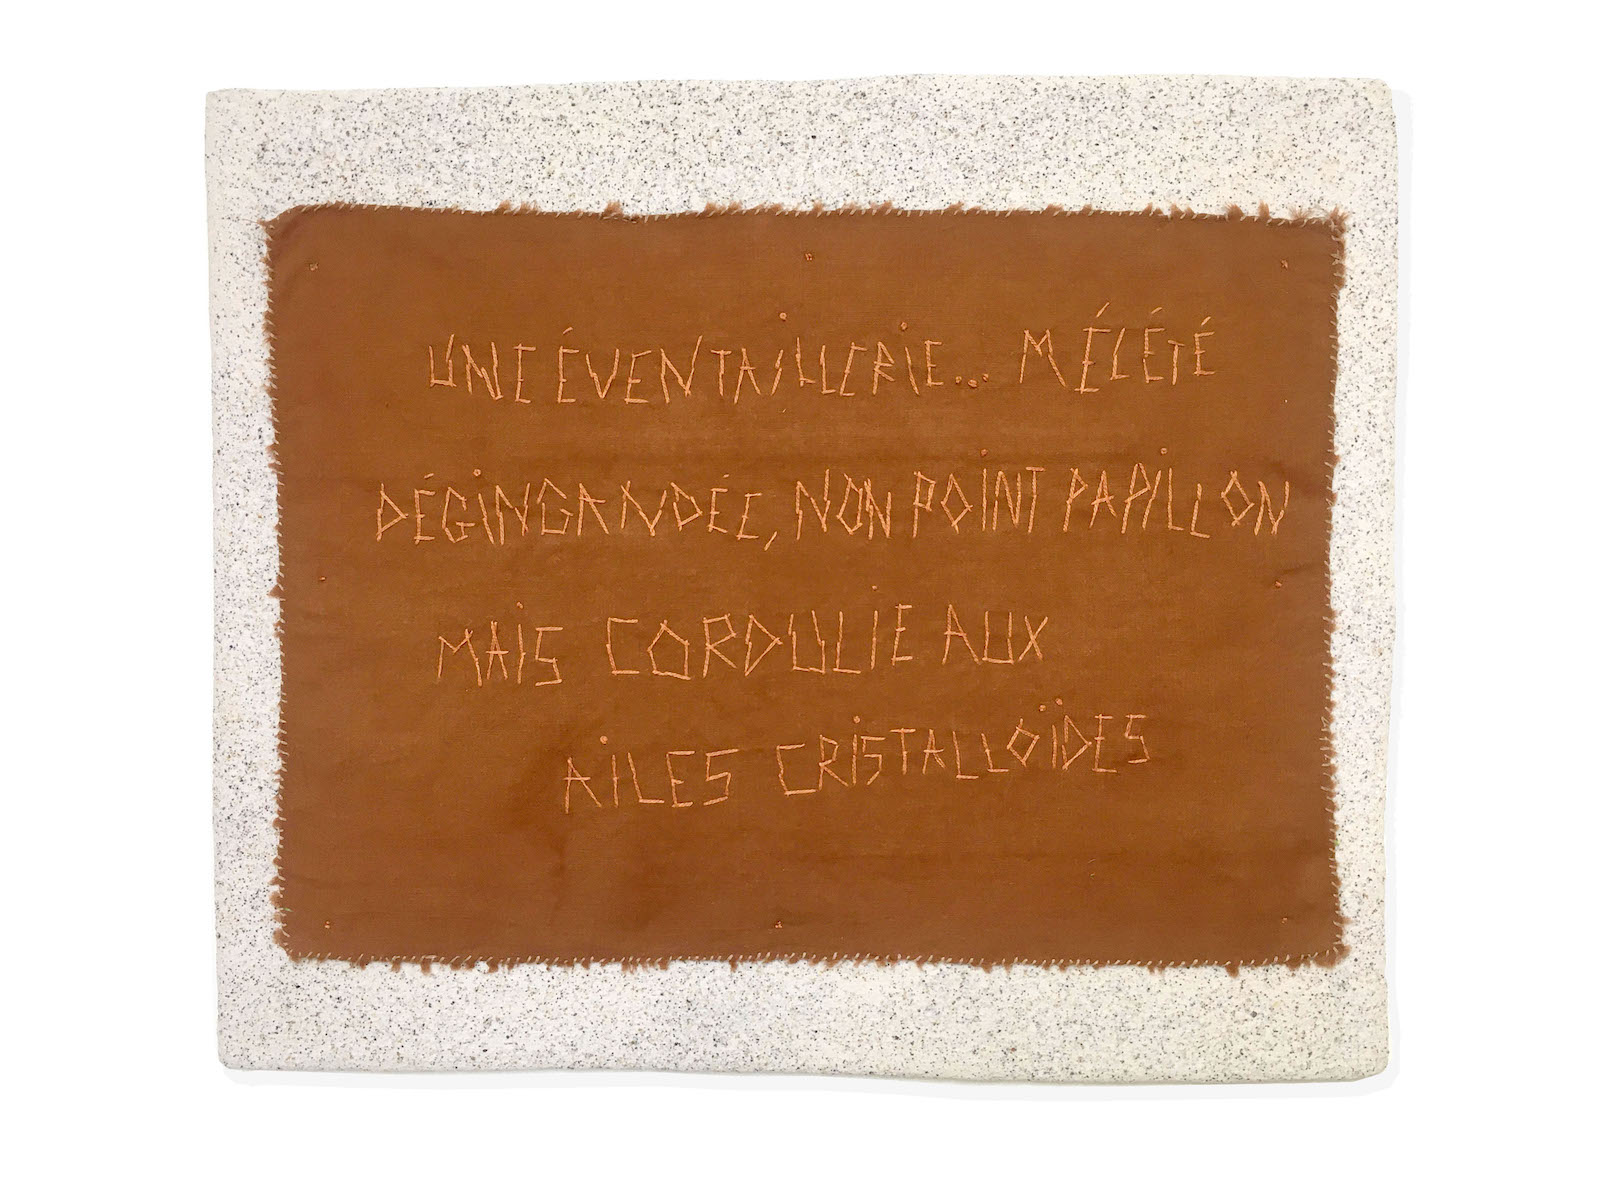 UNE ÉVENTAILLERIE... MÉLÉTÉ
DÉGINGANDÉE, NON POINT PAPILLON
MAIS CORDULIE AUX
AILES CRISTALLOÏDES